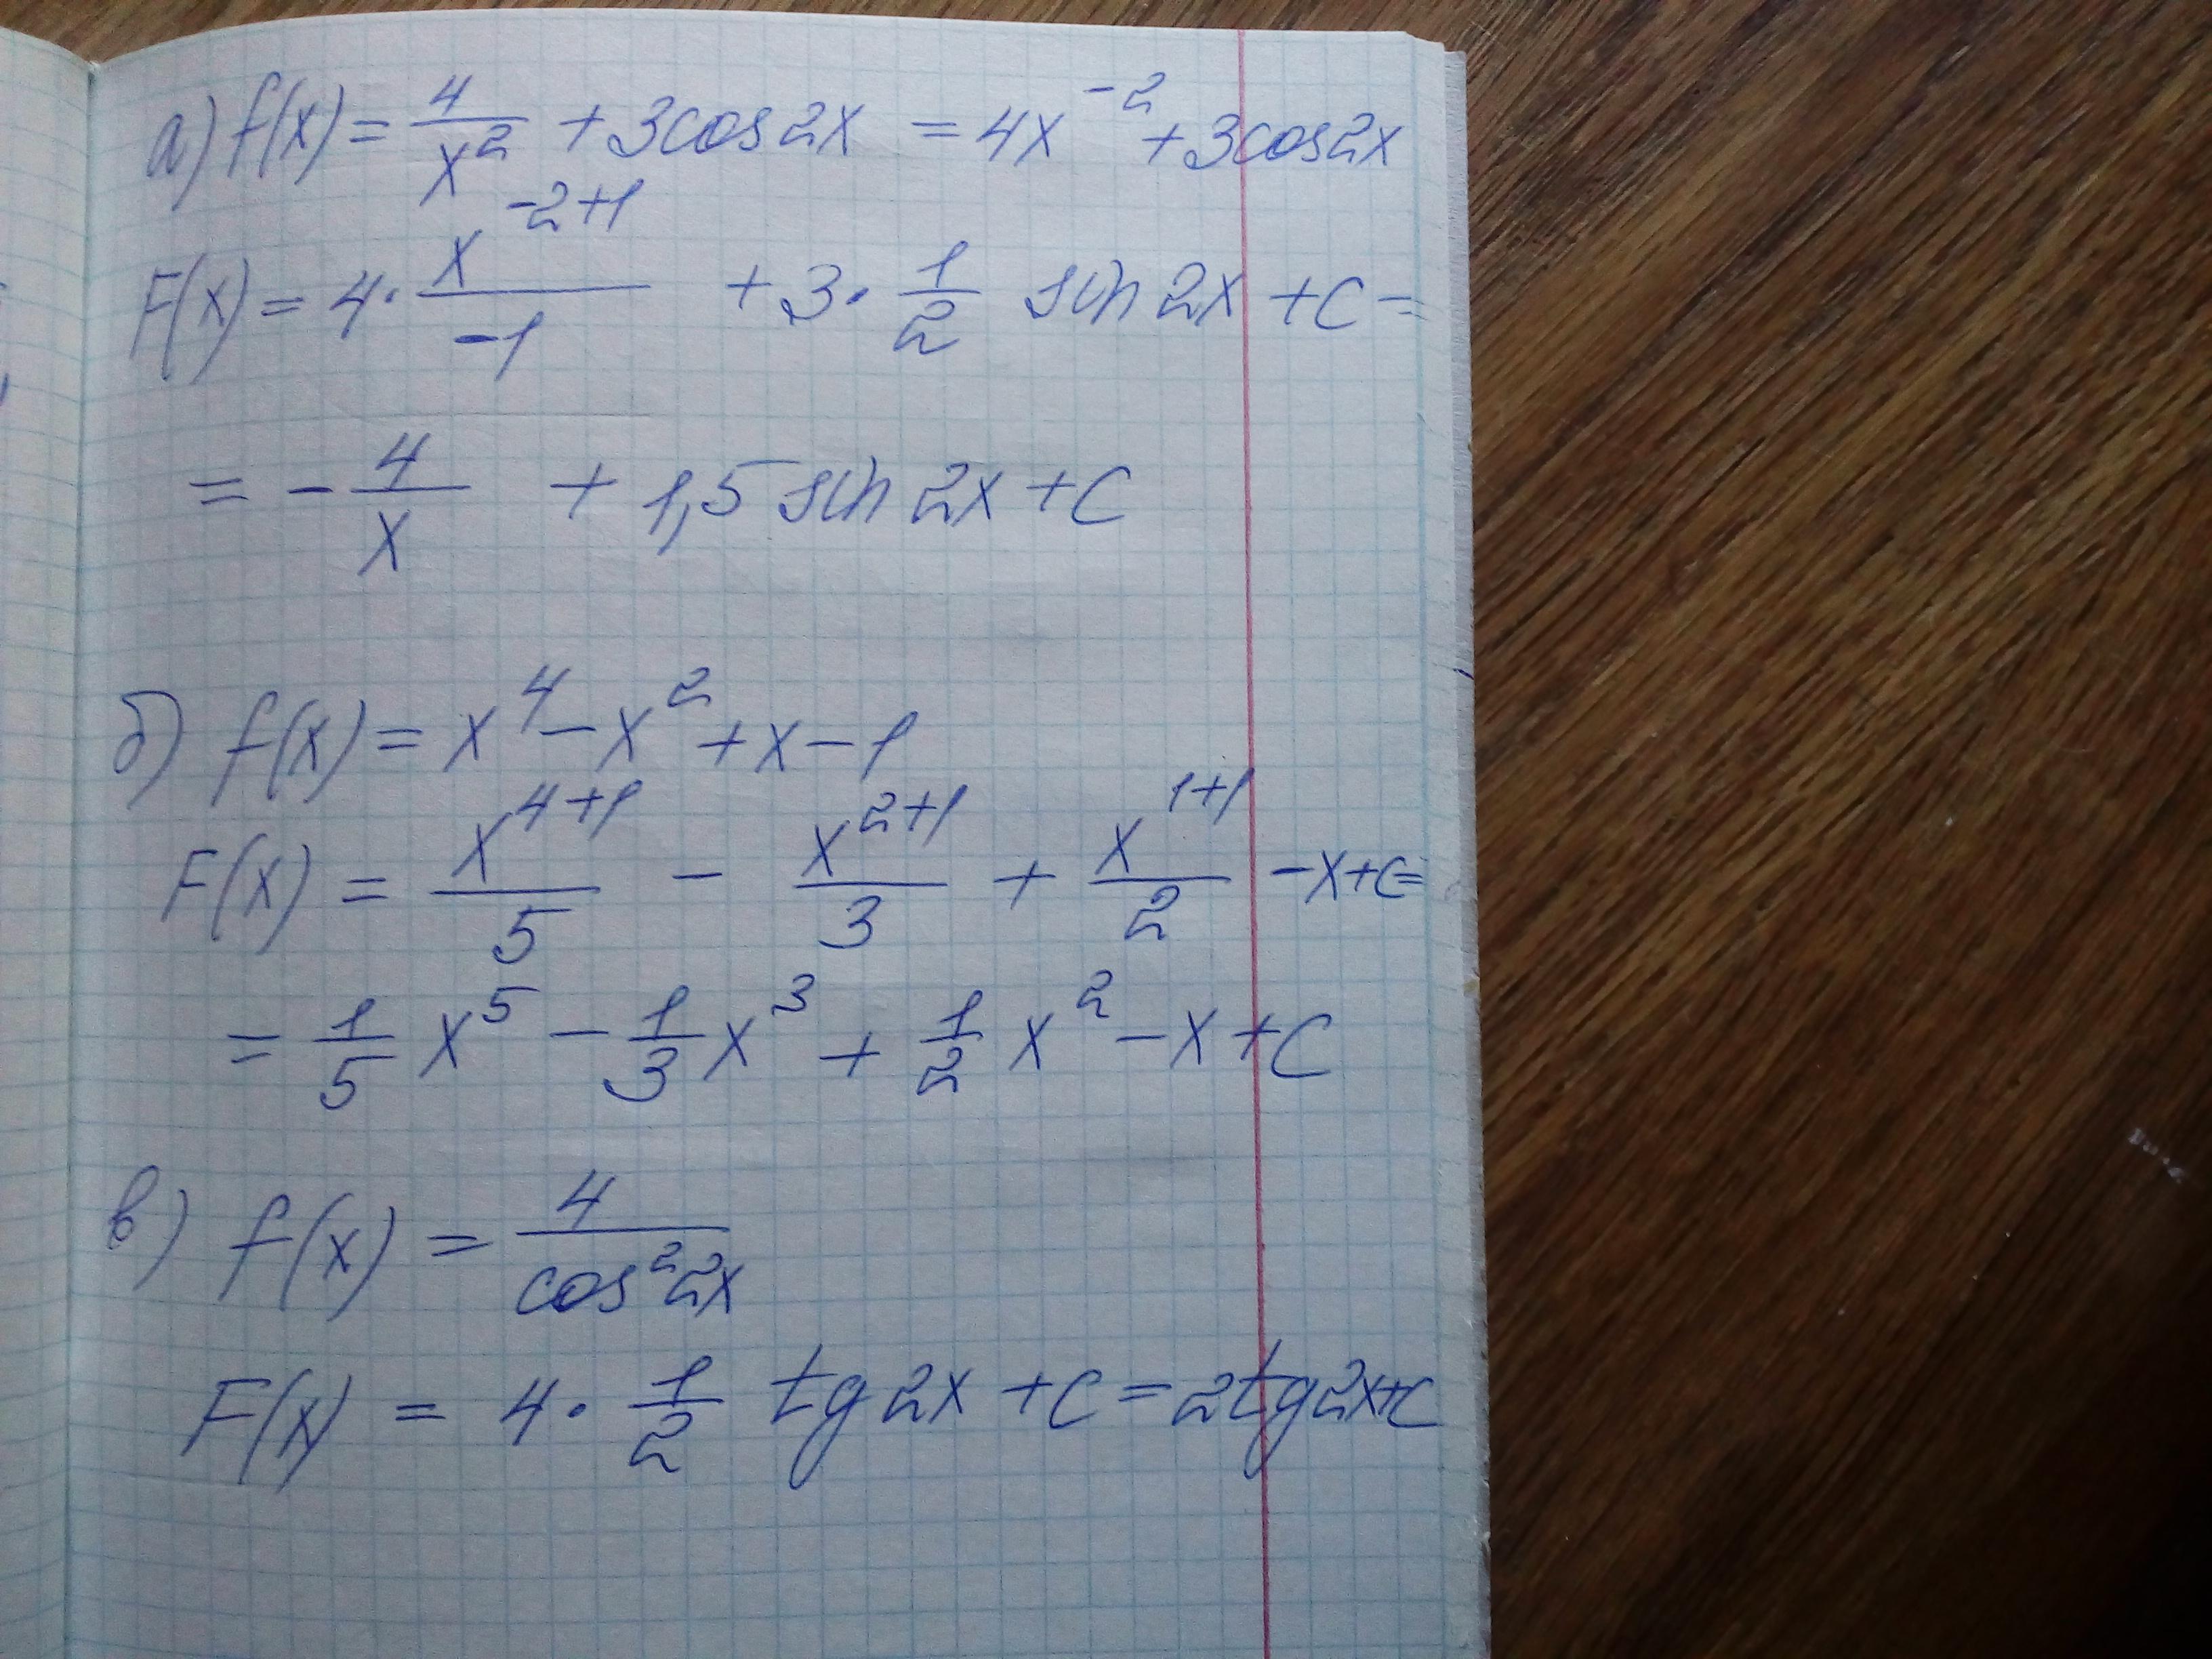 а) f(x) = 4/x² + 3cos2x = 4x⁻² + 3cos2x
F(x) = 4 · x⁻²⁺¹/-1 + 3 · 1/2 sin 2x + C =
= - 4/x + 1,5 sin 2x + C
б) f(x) = x⁴ - x² + x - 1
F(x) = x⁴⁺¹/5 - x²⁺¹/3 + x¹⁺¹/2 - x + C =
= 1/5 x⁵ - 1/3 x³ + 1/2 x² - x + C
в) f(x) = 4/cos²2x
F(x) = 4 · 1/2 tg 2x + C = 2tg2x + C